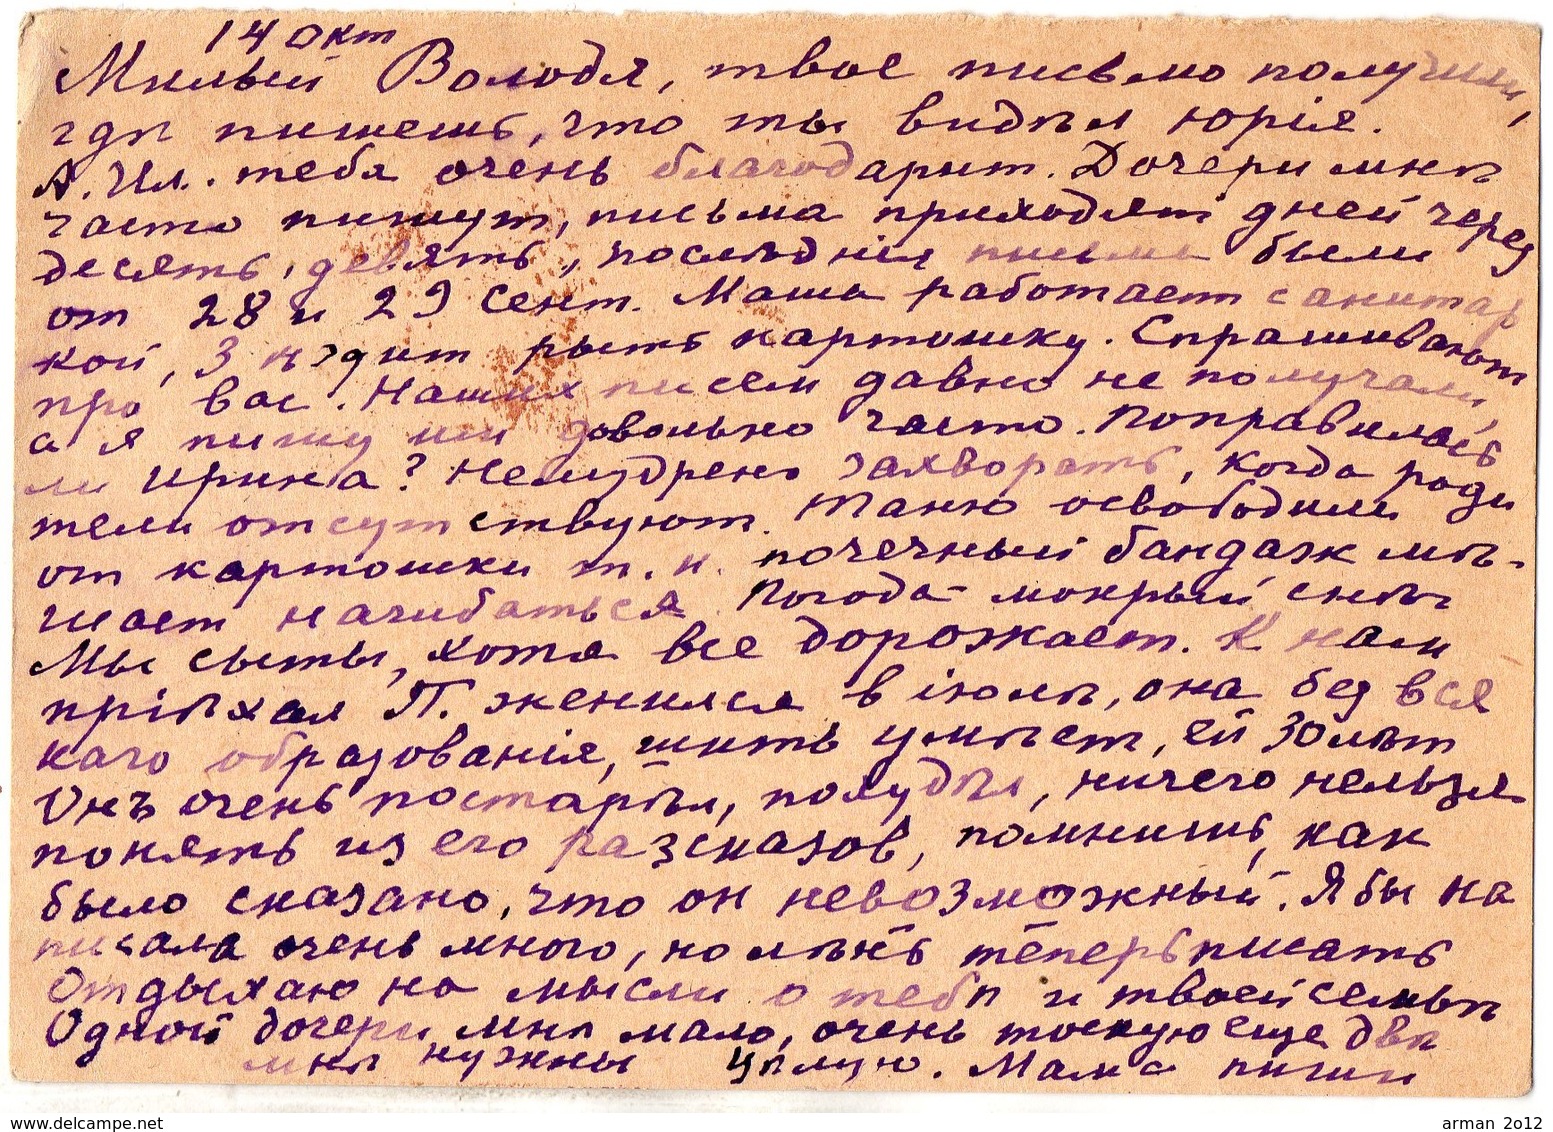 14 окт
Милый Володя, твое письмо получили,
гдѣ пишешь, что ты видѣл Юрія.
А. Ил. тебя очень благодарит. Дочери мнѣ
часто пишут, письма приходят дней через
десять, девять, послѣднія письма были
от 28 и 29 сент. Маша работает санитар
кой, З ѣздит рыть картошку. Спрашивают
про вас. Наших писем давно не получали,
а я пишу им довольно часто. Поправилась
ли Ирина? Немудрено захворать, когда роди
тели отсутствуют. Таню освободили
от картошки т. к. почечный бандаж мѣ-
шает нагибаться. Погода - мокрый снѣг
Мы сыты, хотя все дорожает. К нам
пріѣхал П. женился в іюлѣ, она без вся
каго образованія, шить умѣет, ей 30 лѣт
Онъ очень постарѣл, похудѣл, ничего нельзя
понять из его разсказов, помнишь, как
было сказано, что он невозможный. Я бы на
писала очень много, но лѣнь теперь писать
Отдыхаю на мысли о тебѣ и твоей семьѣ
Одной дочери мнѣ мало, очень тоскую еще двѣ
мнѣ нужны Цѣлую. Мама пиши
arman 2012